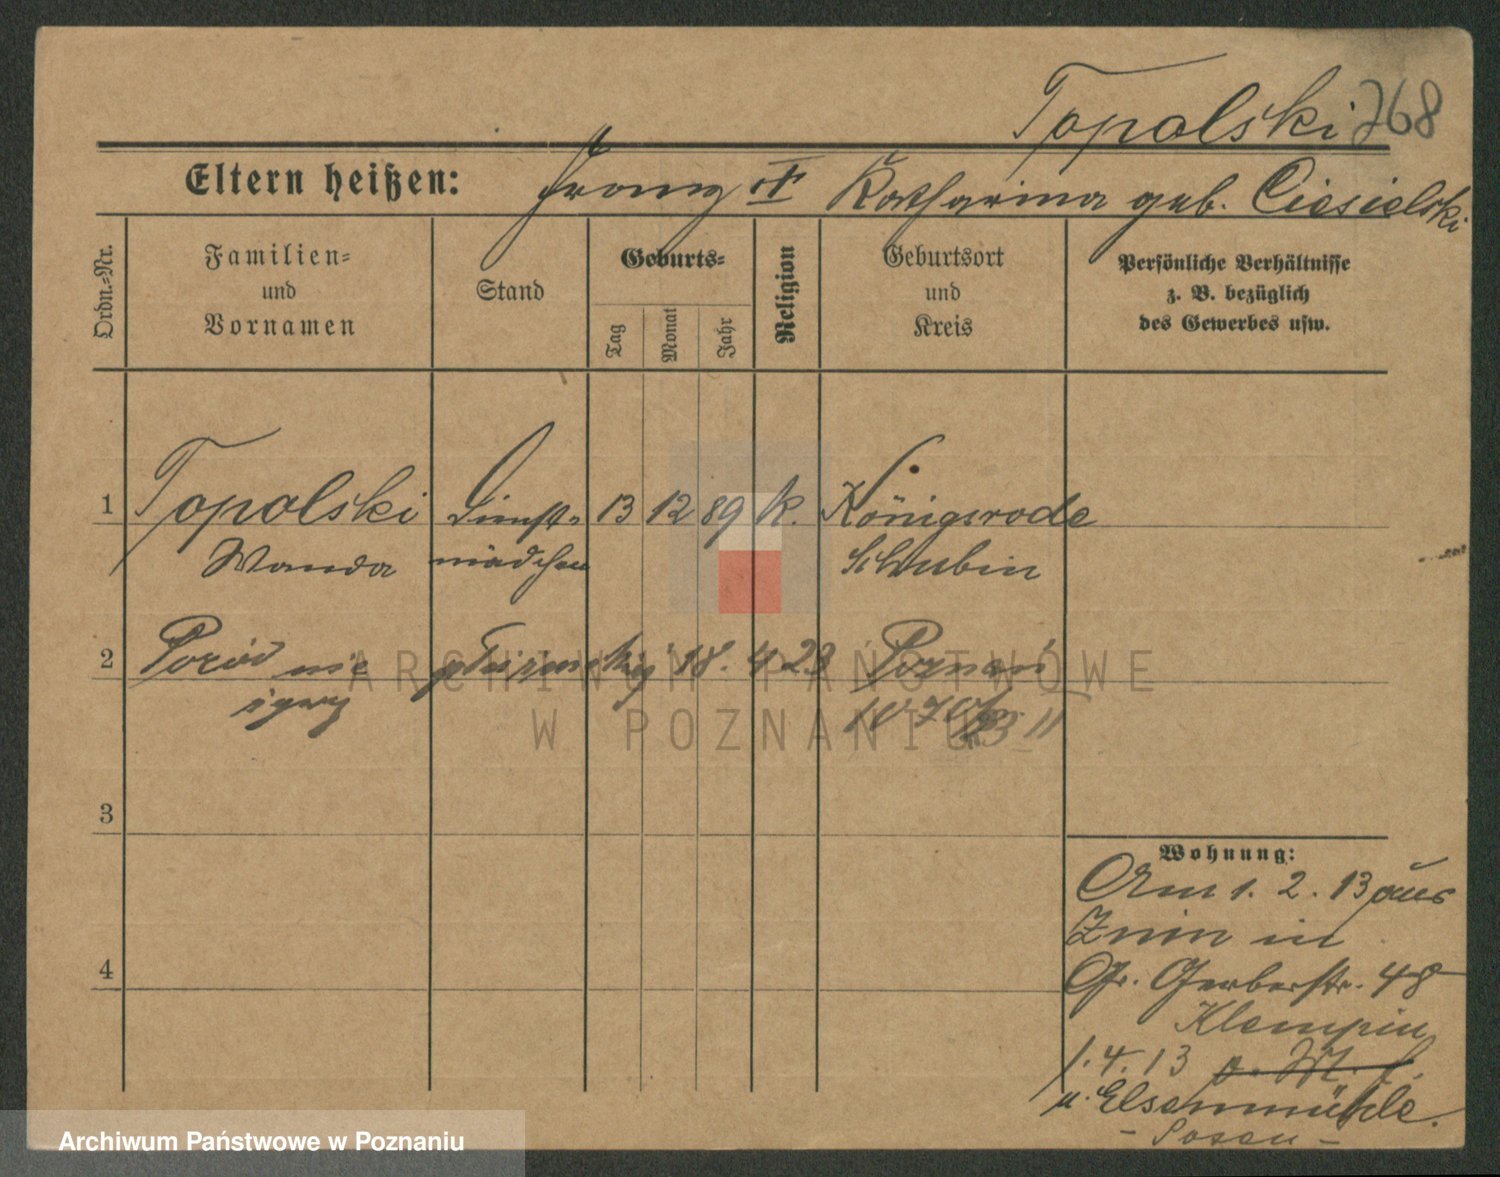 Topolski 768
Eltern heißen: Franz u. Katharina geb. Ciesielski
Ordn.=Nr.
Familien=
und
Vornamen
Stand
Geburts=
Tag
Monat
Jahr
Religion
Geburtsort
und
Kreis
Persönliche Verhältnisse
z. B. bezüglich
des Gewerbes usw.
1 Topolski Dienst= 13 12 89 k. Königsrode
Wanda mädchen Schubin
2 Poród nie 18. 4 23 Poznań
żywy
3
4
Wohnung:
Am 1. 2. 13 aus
Znin in
Gr. Gerberstr. 48
Klempin
1.4.13
n. Elsenmühle.
- Posen -
ARCHIWUM PAŃSTWOWE
W POZNANIU
Archiwum Państwowe w Poznaniu